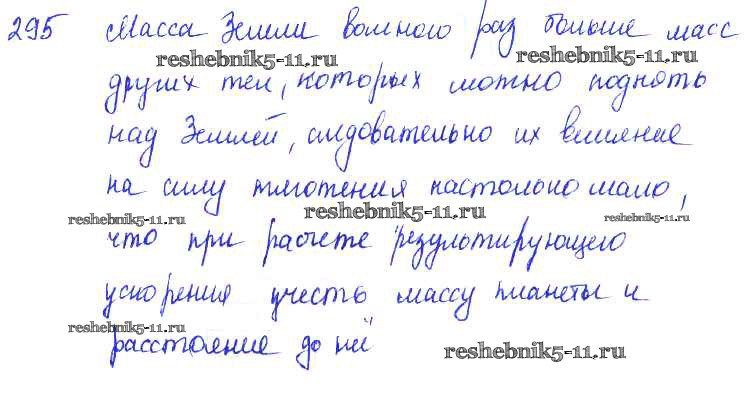 295 Масса Земли вомного раз больше масс
reshebnik5-11.ru reshebnik5-11.ru
других тел, которых можно поднять
над Землей, следовательно их влияние
на силу тяготения настолько мало,
reshebnik5-11.ru reshebnik5-11.ru reshebnik5-11.ru
что при расчете результирующего
ускорения учесть массу планеты и
reshebnik5-11.ru
расстояние до неё
reshebnik5-11.ru